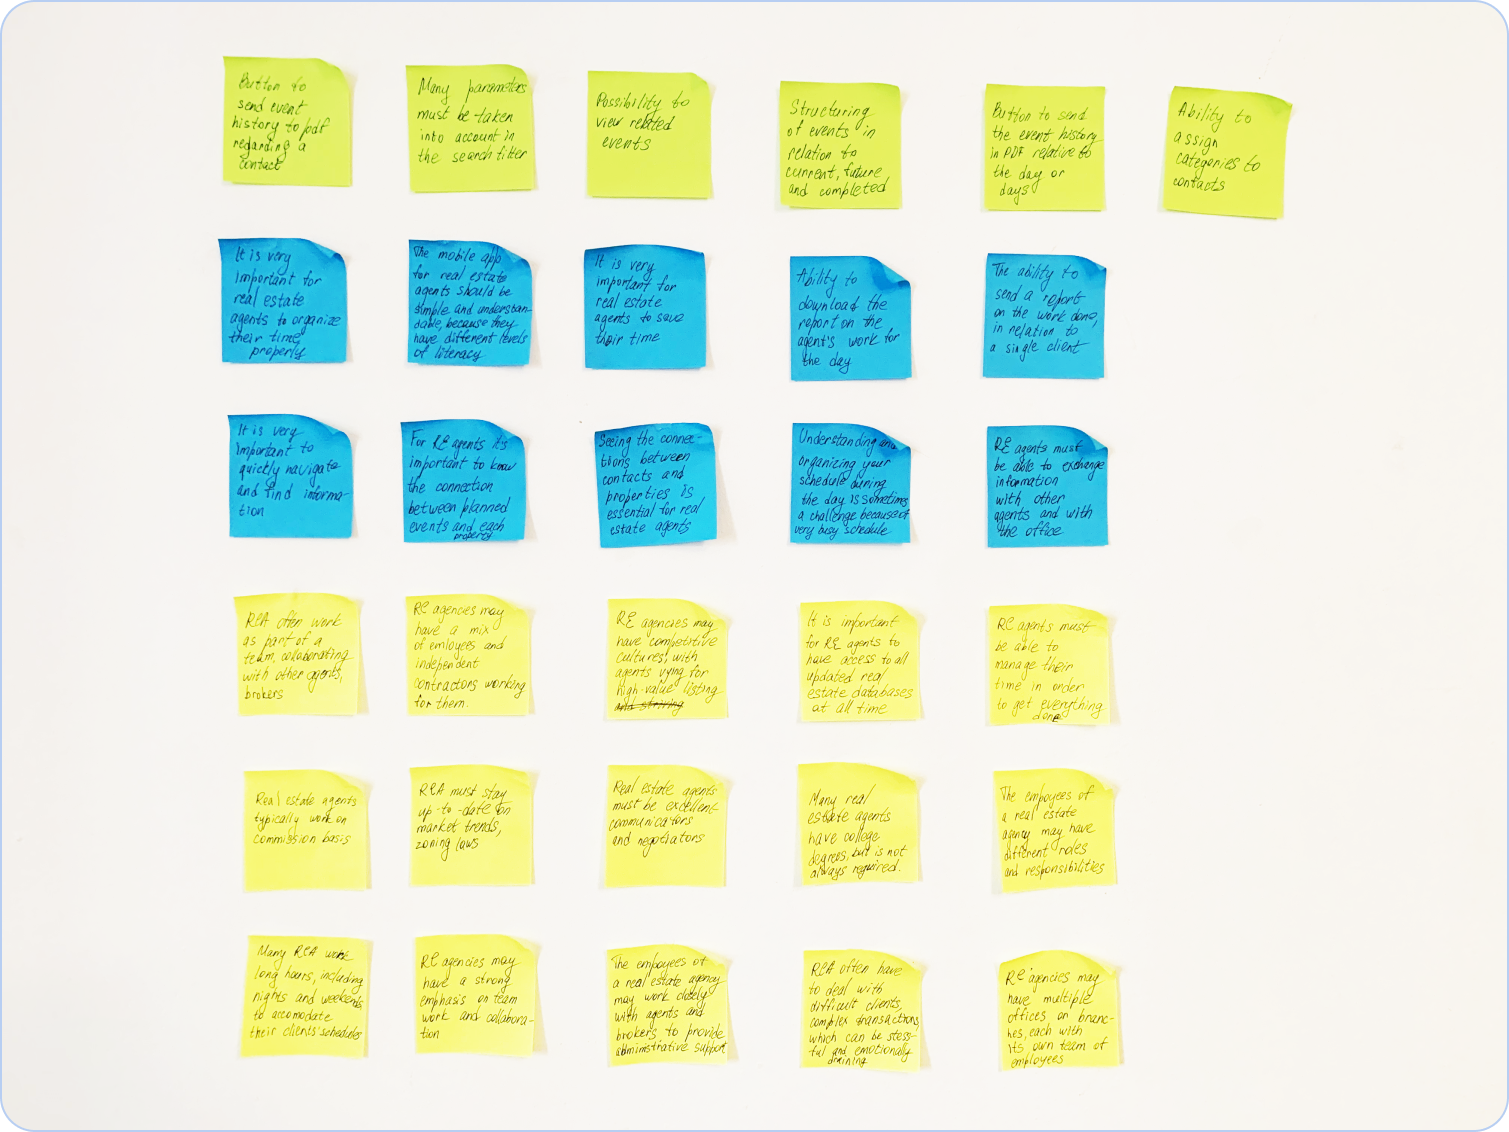 Button to
send event
history to pdf
regarding a
contact
Many parameters
must be taken
into account in
the search filter
Possibility to
view related
events
Structuring
of events in
relation to
current, future
and completed
Button to send
the event history
in PDF relative to
the day or
days
Ability to
assign
categories to
contacts
It is very
important for
real estate
agents to organize
their time
properly
The mobile app
for real estate
agents should be
simple and understan-
dable, because they
have different levels
of literacy
It is very
important for
real estate
agents to save
their time
Ability to
download the
report on the
agent's work for
the day
The ability to
send a report
on the work done,
in relation to
a single client
It is very
important to
quickly navigate
and find informa-
tion
For RE agents it's
important to know
the connection
between planned
events and each
property
Seeing the connec-
tions between
contacts and
properties is
essential for real
estate agents
Understanding and
organizing your
schedule during
the day is sometimes
a challenge because of
very busy schedule
RE agents must
be able to exchange
information
with other
agents and with
the office
REA often work
as part of a
team, collaborating
with other agents,
brokers
RE agencies may
have a mix
of emloyees and
independent
contractors working
for them.
RE agencies may
have competitive
cultures, with
agents vying for
high-value listing
and striving
It is important
for RE agents to
have access to all
updated real
estate databases
at all time
RE agents must
be able to
manage their
time in order
to get everything
done
Real estate agents
typically work on
commission basis
REA must stay
up-to-date on
market trends,
zoning laws
Real estate agents
must be excellent
communicators
and negotiators
Many real
estate agents
have college
degrees, but is not
always required.
The empoyees of
a real estate
agency may have
different roles
and responsibilities
Many REA work
long hours, including
nights and weekends,
to accomodate
their clients' schedules
RE agencies may
have a strong
emphasis on team
work and collabora-
tion
The empoyees of
a real estate agency
may work closely
with agents and
brokers to provide
administrative support
REA often have
to deal with
difficult clients,
complex transactions,
which can be stess-
ful and emotionally
draining
RE agencies may
have multiple
offices or branc-
hes, each with
its own team of
employees